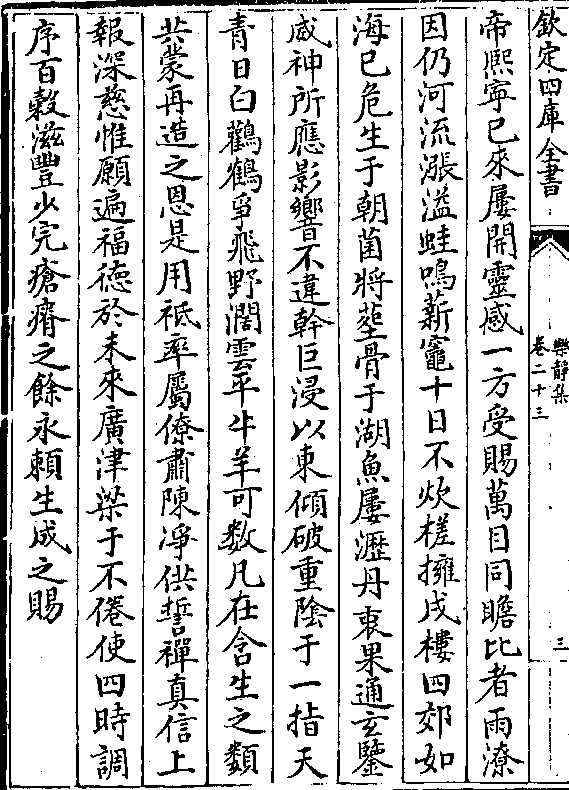 欽定四庫全書
樂静集
卷二十三
三
帝熙寧已來屢開靈感一方受賜萬目同瞻比者雨潦
因仍河流漲溢蛙鳴薪竈十日不炊槎擁戍樓四郊如
海已危生于朝菌將塟骨于湖魚屢瀝丹衷果通玄鑒
威神所應影響不違幹巨浸以東傾破重陰于一指天
青日白鸛鶴爭飛野濶雲平牛羊可数凡在含生之類
共蒙再造之恩是用祗率屬僚肅陳凈供誓禪真信上
報深慈惟願遍福徳於未來廣津梁于不倦使四時調
序百穀滋豐少完瘡瘠之餘永賴生成之賜